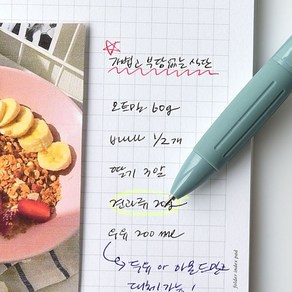 가볍고 부담없는 식단
오트밀 60g
바나나 1/2개
딸기 3알
견과류 20g
우유 200ml
→두유 or 아몬드밀크
대체가능!
folder index pad